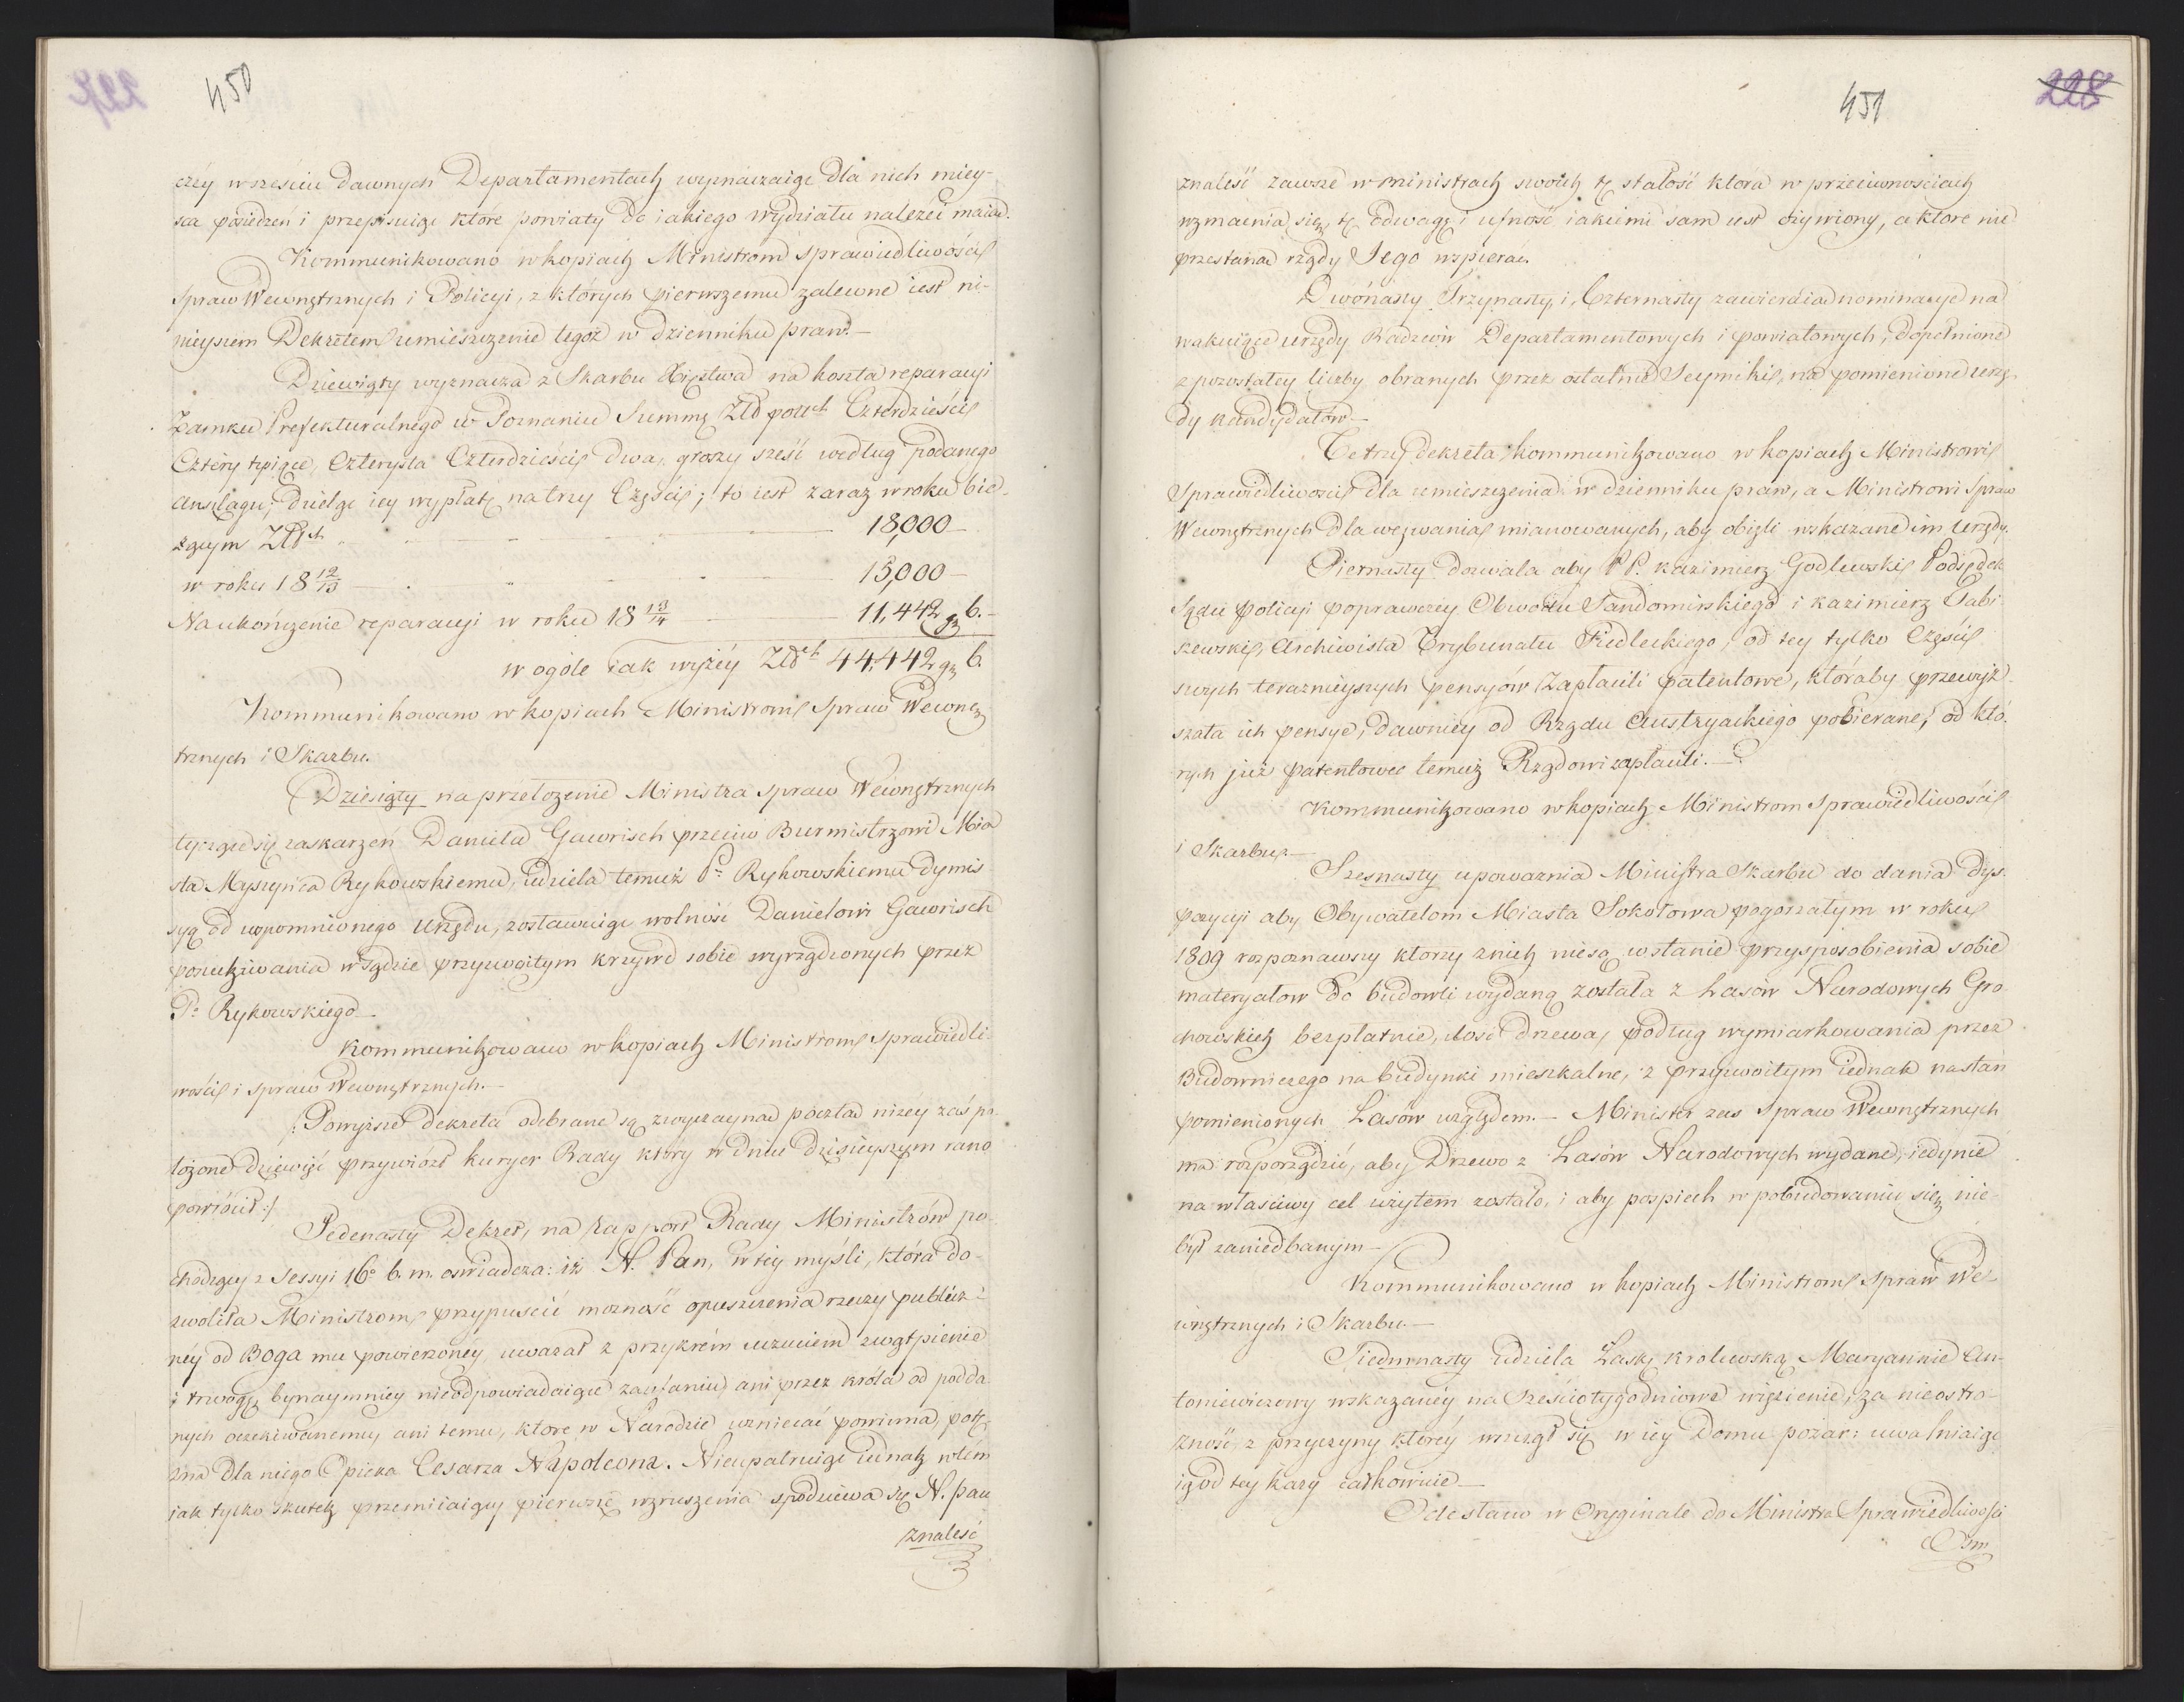 450
czéy w sześciu dawnych Departamentach wyznaczaiąc dla nich miey-
sca posiedzeń i przepisuiąc które powiaty do iakiego wydziału należéć maią.
Kommunikowano w kopiach Ministrom Sprawiedliwości
Spraw Wewnętrznych i Policyi, z których pierwszemu zalecone iest ni-
nieyszem Dekretem umieszczenie tegoż w dzienniku praw.—
Dziewiąty wyznacza z Skarbu Xięstwa na koszta reparacyi
Zamku Prefekturalnego w Poznaniu Summę Złd polch Czterdzieści
Cztéry tysiące, Czterysta Czterdzieści dwa, groszy sześć według podanego
Anszlagu; dzieląc iey wypłatę na trzy Części; to iest zaraz w roku bie-
żącym Złch 18,000—
w roku 18 12/13 — 15,000—
Na ukończenie reparacyi w roku 18 13/14 — 11,442 gr 6.—
w ogóle iak wyżéy Złch 44,442 gr 6.
Kommunikowano w kopiach Ministrom Spraw Wewnę-
trznych i Skarbu.
Dziesiąty na przełożenie Ministra Spraw Wewnętrznych
tyczące się zaskarżeń Daniela Gawrisch przeciw Burmistrzowi Mia
sta Myszyńca Rykowskiemu, udziela temuż P. Rykowskiemu dymis
syą od wspomnionego Urzędu, zostawuiąc wolność Danielowi Gawrisch
poszukiwania w Sądzie przyzwoitym krzywd sobie wyrządzonych przez
P. Rykowskiego—
Kommunikowano w kopiach Ministrom Sprawiedli-
wości i Spraw Wewnętrznych.—
/:Powyższe dekreta odebrane są zwyczayną pocztą niżey zaś po-
łożone dziewięć przywiózł kuryer Rady który w dniu dzisieyszym rano
powrócił:/
Jedenasty Dekret, na rapport Rady Ministrów po-
chodzący z Sessyi 16o b. m. oświadcza: iż N. Pan, w tey myśli, która do-
zwoliła Ministrom przypuścić możność opuszczenia rzeczy publicz-
néy od Boga mu powierzonéy, uważał z przykrém uczuciem zwątpienie
i trwogę, bynaymniey nieodpowiadaiące zaufaniu, ani przez króla od podda-
nych oczekiwanemu, ani temu, które w Narodzie wzniecać powinna potę-
żna dla niego Opieka Cesarza Napoleona. Nieupatruiąc iednak w tém
iak tylko skutek przemiiaiący pierwszego wzruszenia spodziewa się N. Pan
znaleść
451
228
znaleść zawsze w Ministrach swoich tę stałość która w przeciwnościach
wzmacnia się, tę odwagę i ufność iakiemi sam iest ożywiony, a które nie
przestaną rządy Jego wspierać.
Dwónasty, Trzynasty, i, Czternasty zawieraią nominacye na
wakuiące urzędy Radzców Departamentowych i powiatowych, dopełnione
z pozostałey liczby obranych przez ostatnie Seymiki, na pomienione urzę-
dy kandydatów—
Te trzy dekreta kommunikowano w kopiach Ministrowi
Sprawiedliwości dla umieszczenia w dzienniku praw, a Ministrowi Spraw
Wewnętrznych dla wezwania mianowanych, aby obięli wskazane im Urzędy.
Piętnasty dozwala aby PP. Kazimierz Godlewski Podsędek
Sądu policyi poprawczéy Obwodu Sandomirskiego i Kazimierz Gabi-
szewski, Archiwista Trybunału Siedleckiego, od tey tylko Części
swych teraznieyszych pensyów zapłacili patentowe, któraby przewyż-
szała ich pensye, dawniéy od Rządu Austryackiego pobierane, od któ-
rych już patentowe temuż Rządowi zapłacili.—
Kommunikowano w kopiach Ministrom Sprawiedliwości
i Skarbu.—
Szesnasty upoważnia Ministra Skarbu do dania dys-
pozycyi aby Obywatelom Miasta Sokołowa pogorzałym w roku
1809 rozpoznawszy którzy z nich nie są w stanie przysposobienia sobie
materyałów do budowli wydaną została z Lasów Narodowych Gro-
chowskich bezpłatnie, ilość drzewa, podług wymiarkowania przez
Budowniczego na budynki mieszkalne, z przyzwoitym iednak na stan
pomienionych Lasów względem.— Minister zaś Spraw Wewnętrznych
ma rozporządzić, aby Drzewo z Lasów Narodowych wydane, iedynie
na właściwy cel użytem zostało, i aby pospiech w pobudowaniu się nie
był zaniedbanym—
Kommunikowano w kopiach Ministrom Spraw We-
wnętrznych i Skarbu—
Siedmnasty udziela Łaskę królewską Maryannie An-
toniewiczowy wskazanéy na Sześciotygodniowe więzienie, za nieostro-
żność, z przyczyny któréy wszczął się w iey Domu pożar: uwalniaiąc
ią od tey kary całkowicie—
Odesłano w Oryginale do Ministra Sprawiedliwości
Osm